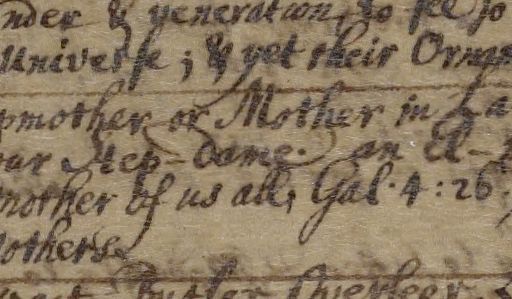 nder & generation, so
Universe; & yet their Orna
pmother or Mother in La
ar Step-dame. an El-
mother of us all, Gal. 4:26.
Mothers
Butler